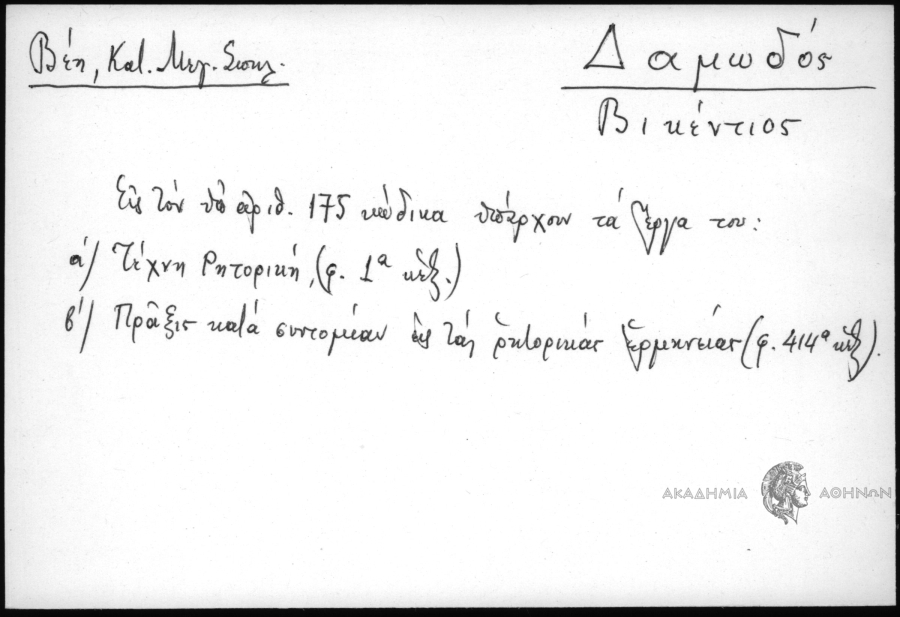 Βέη, Κατ. Μεγ. Σπηλ.
Δαμωδός
Βικέντιος
Εἰς τὸν ὑπ' ἀριθ. 175 κώδικα ὑπάρχουν τά ἔργα του:
α΄/ Τέχνη Ρητορική, (φ. 1α κἑξ.)
β΄/ Πρᾶξις κατά συντομίαν εἰς τάς ῥητορικάς ἑρμηνείας (φ. 414α κἑξ).
ΑΚΑΔΗΜΙΑ ΑΘΗΝΩΝ